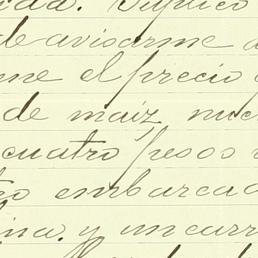 idad. Suplico
de avisarme a
me el precio
de maiz, nue
cuatro pesos
embarcad
ina. y un curr